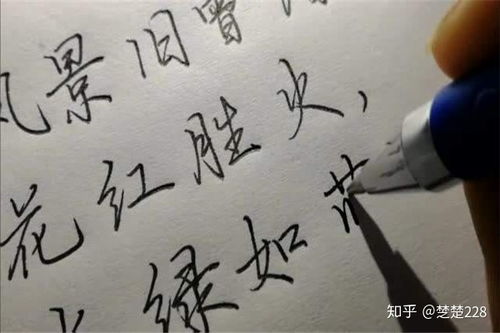 风景旧曾
花红胜火,
绿如
知乎 @楚楚228